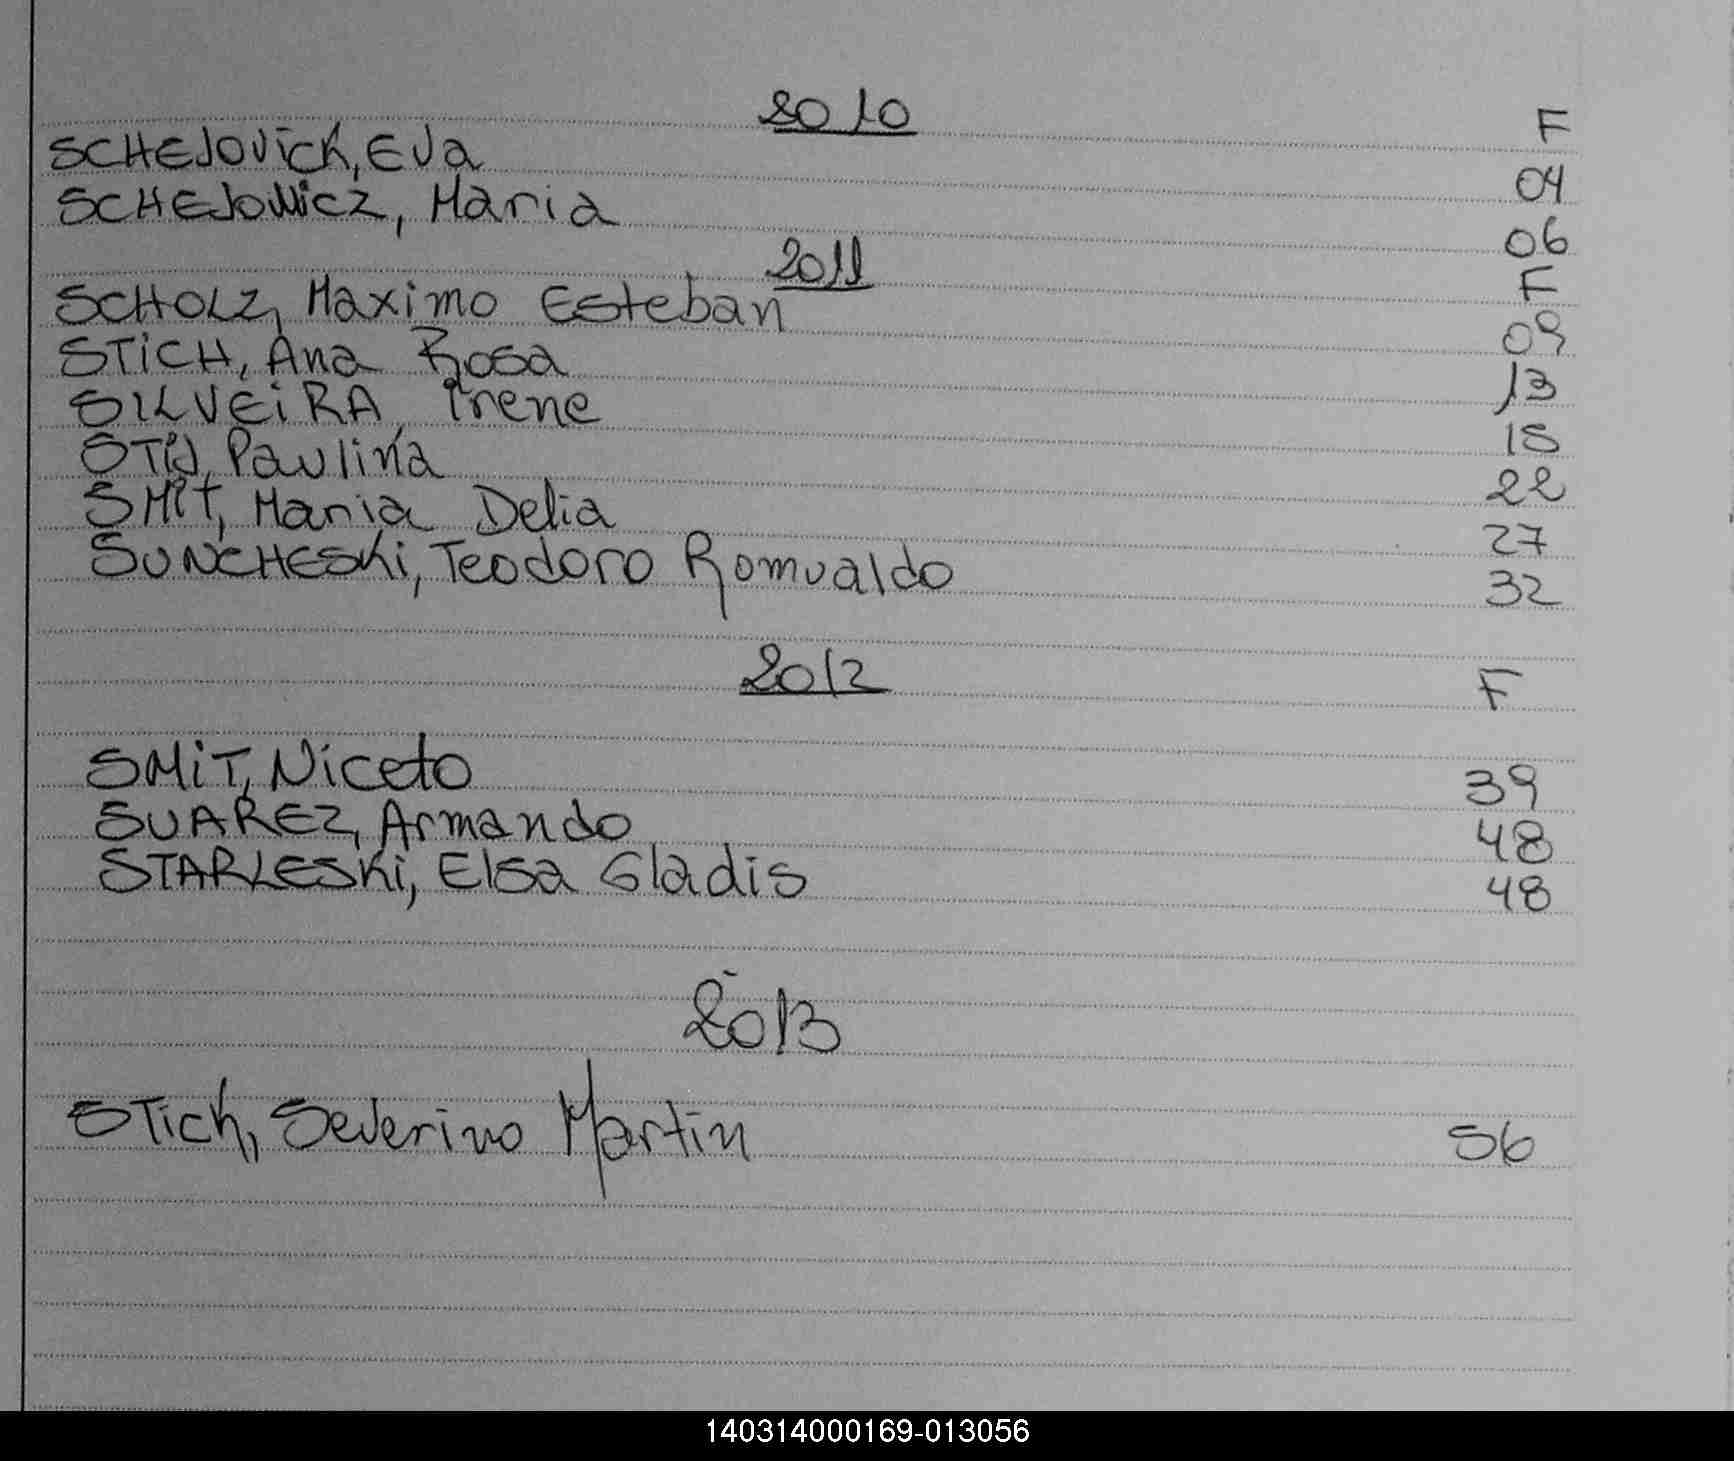 2010 F
SCHEJOVICH, Eva 04
SCHEJOWICZ, Maria 06
2011 F
SCHOLZ, Maximo Esteban 09
STICH, Ana Rosa 13
SILVEIRA, Irene 15
Paulina 22
SMIT, Maria Delia 27
SUNCHESKI, Teodoro Romualdo 32
2012 F
SMIT, Niceto 39
SUAREZ, Armando 48
STARLESKI, Elsa Gladis 48
2013
STICH, Severino Martin 56
140314000169-013056